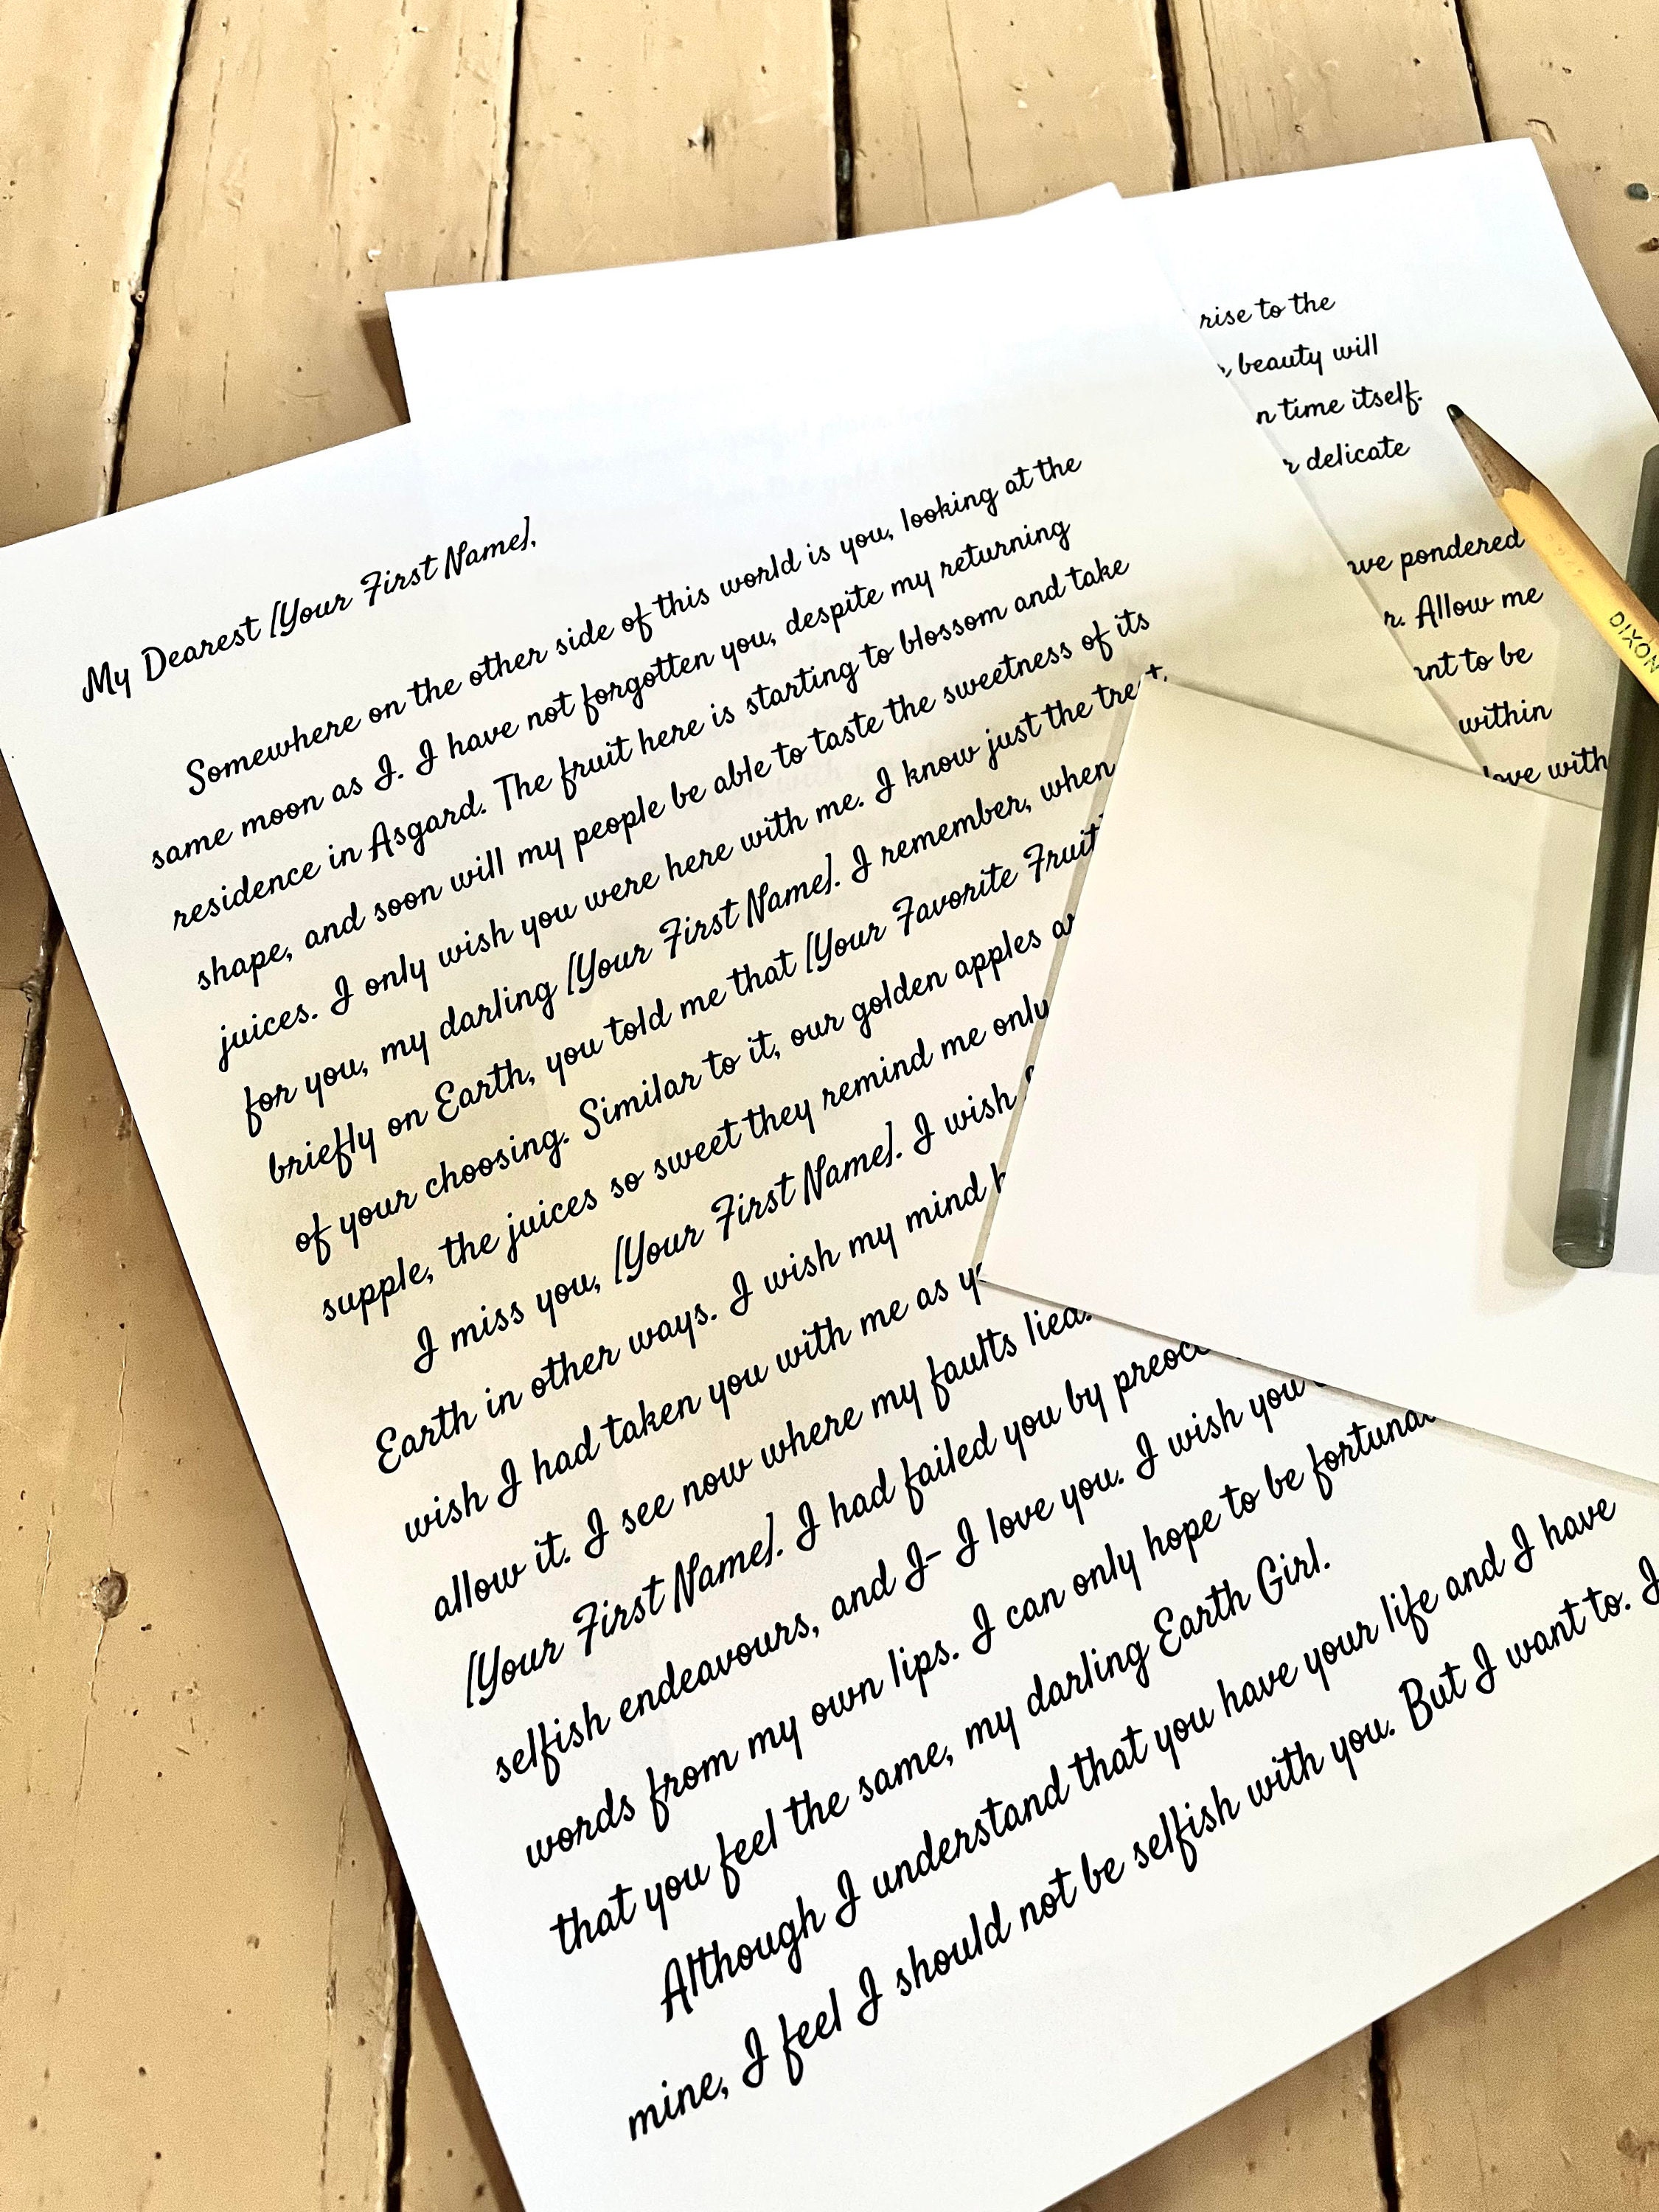 My Dearest [Your First Name],
Somewhere on the other side of this world is you, looking at the
same moon as I. I have not forgotten you, despite my returning
residence in Asgard. The fruit here is starting to blossom and take
shape, and soon will my people be able to taste the sweetness of its
juices. I only wish you were here with me. I know just the treat,
for you, my darling [Your First Name]. I remember, when
briefly on Earth, you told me that [Your Favorite Fruit
of your choosing. Similar to it, our golden apples
supple, the juices so sweet they remind me only
I miss you, [Your First Name]. I wish
Earth in other ways. I wish my mind
wish I had taken you with me as
allow it. I see now where my faults
[Your First Name]. I had failed you by
selfish endeavours, and I- I love you. I wish you
words from my own lips. I can only hope to be
that you feel the same, my darling Earth Girl.
Although I understand that you have your life and I have
mine, I feel I should not be selfish with you. But I want to. I
rise to the
beauty will
time itself.
delicate
pondered
Allow me
to be
within
love with
DIXON